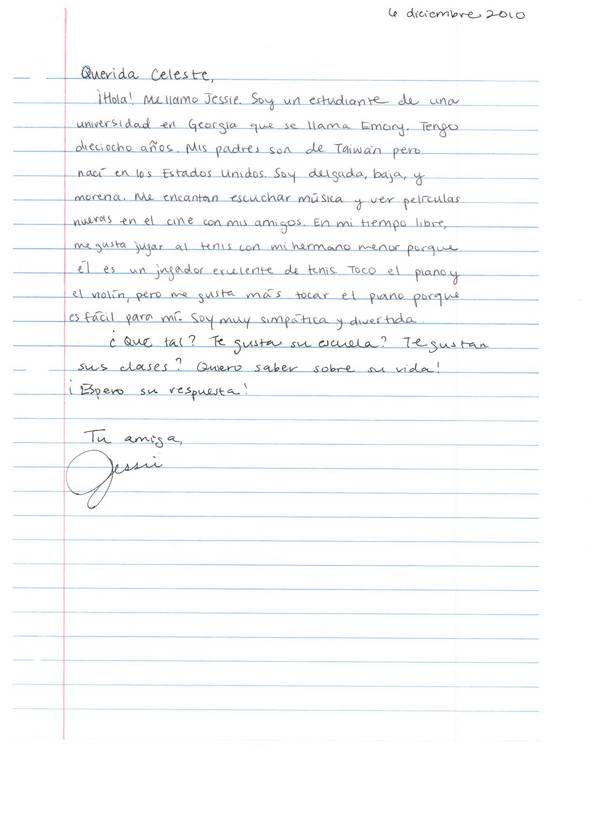 6 diciembre 2010
Querida Celeste,
¡Hola! Me llamo Jessie. Soy un estudiante de una
universidad en Georgia que se llama Emory. Tengo
dieciocho años. Mis padres son de Taiwan pero
nací en los Estados Unidos. Soy delgada, baja, y
morena. Me encantan escuchar música y ver películas
nuevas en el cine con mis amigos. En mi tiempo libre,
me gusta jugar al tenis con mi hermano menor porque
él es un jugador excelente de tenis. Toco el piano y
el violín, pero me gusta más tocar el piano porque
es fácil para mí. Soy muy simpática y divertida.
¿Que tal? Te gusta su escuela? Te gustan
sus clases? Quiero saber sobre su vida!
¡Espero su respuesta!
Tu amiga,
Jessie